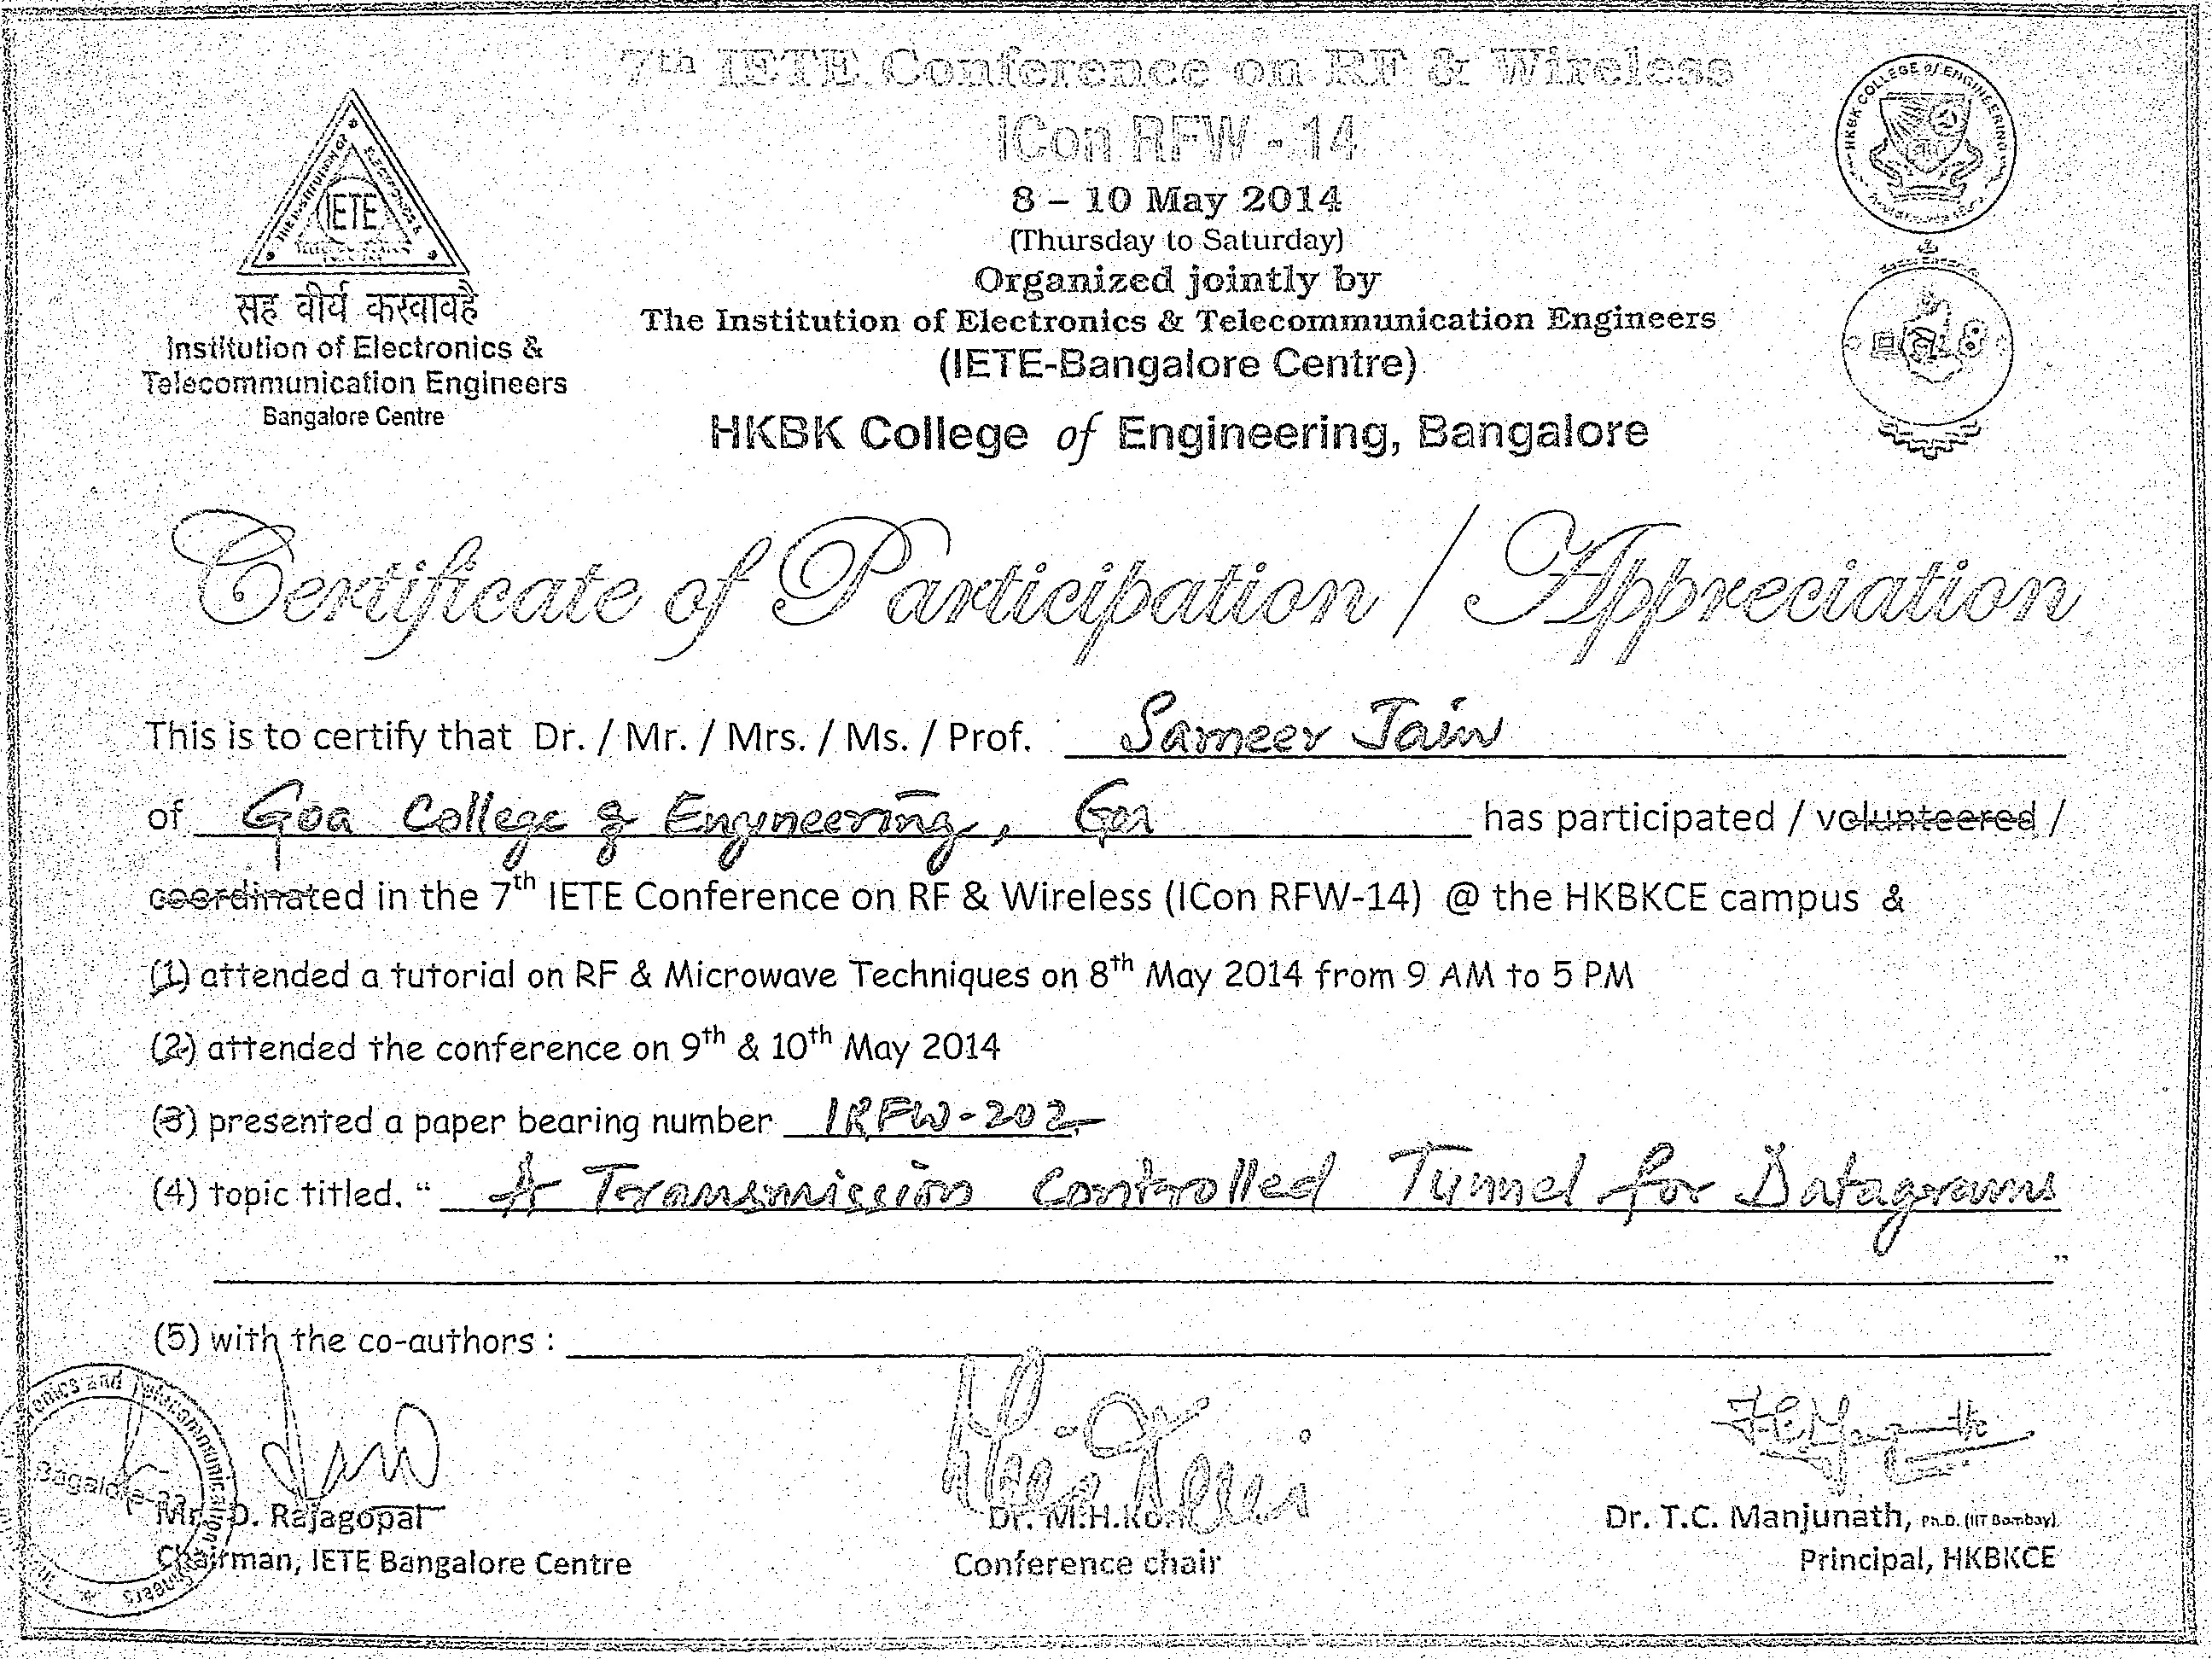 7th IETE Conference on RF & Wireless
iCon RFW - 14
8 – 10 May 2014
(Thursday to Saturday)
Organized jointly by
The Institution of Electronics & Telecommunication Engineers
(IETE-Bangalore Centre)
HKBK College of Engineering, Bangalore
IETE
सह वीर्यं करवावहै
Institution of Electronics &
Telecommunication Engineers
Bangalore Centre
HKBK COLLEGE of ENGINEERING
Certificate of Participation / Appreciation
This is to certify that Dr. / Mr. / Mrs. / Ms. / Prof. Sameer Jain
of Goa College of Engineering, Goa has participated / volunteered /
coordinated in the 7th IETE Conference on RF & Wireless (ICon RFW-14) @ the HKBKCE campus &
(1) attended a tutorial on RF & Microwave Techniques on 8th May 2014 from 9 AM to 5 PM
(2) attended the conference on 9th & 10th May 2014
(3) presented a paper bearing number IRFW-202
(4) topic titled. “ A Transmission Controlled Tunnel for Datagrams
”
(5) with the co-authors :
Mr. D. Rajagopal
Chairman, IETE Bangalore Centre
Dr. M.H.
Conference chair
Dr. T.C. Manjunath, Ph.D. (IIT Bombay)
Principal, HKBKCE